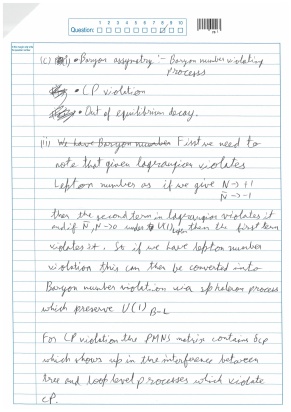 Question: 1 2 3 4 5 6 7 8 9 10
(c) i) • Baryon assymetry :- Baryon number violating
processes
• CP violation
• Out of equilibrium decay.
(ii) We have Baryon number First we need to
note that given lagrangian violates
Lepton number as if we give N → +1
N̄ → -1
then the second term in lagrangian violates it
and if N̄, N → 0 under U(1) then the first term
violates it. So if we have lepton number
violation this can then be converted into
Baryon number violation via sphaleron process
which preserve U(1) B-L
For CP violation the PMNS matrix contains δcp
which shows up in the interference between
tree and loop level processes which violate
CP.